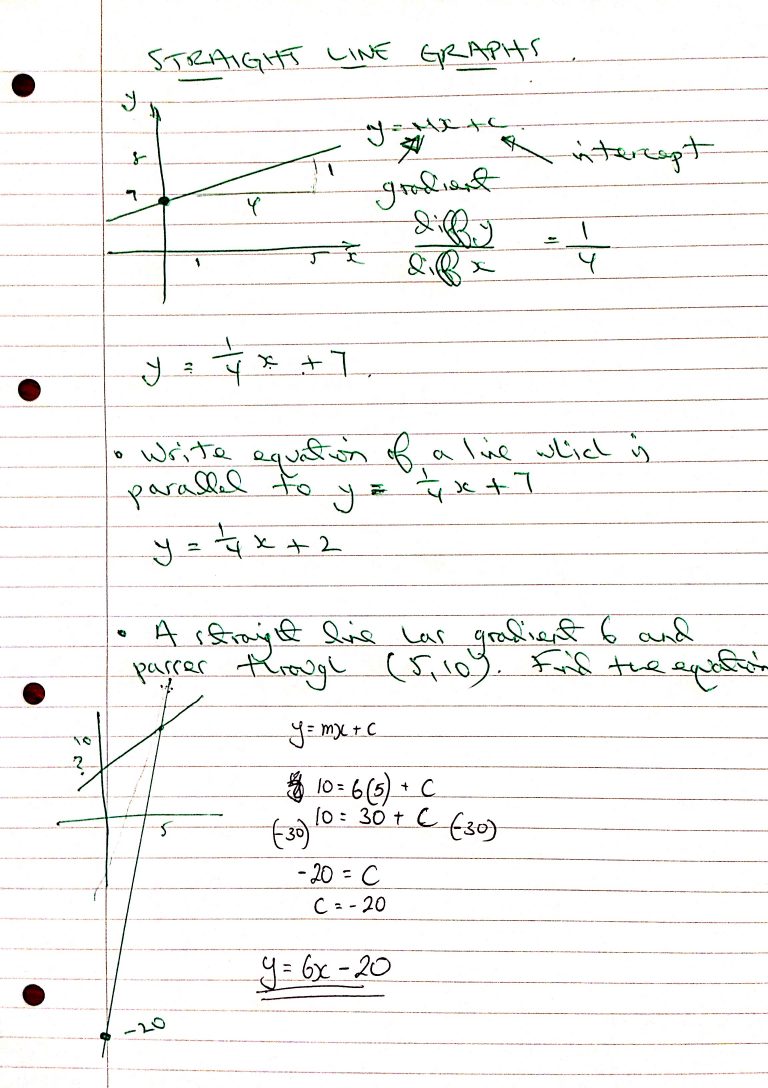 STRAIGHT LINE GRAPHS.
y
8
7
1
4
1
5 x
y = mx + c
intercept
gradient
diff y / diff x = 1/4
y = 1/4 x + 7.
• Write equation of a line which is
parallel to y = 1/4 x + 7
y = 1/4 x + 2
• A straight line has gradient 6 and
passes through (5,10). Find the equation
10
?
5
-20
y = mx + c
10 = 6(5) + C
(-30) 10 = 30 + C (-30)
-20 = C
C = -20
y = 6x - 20